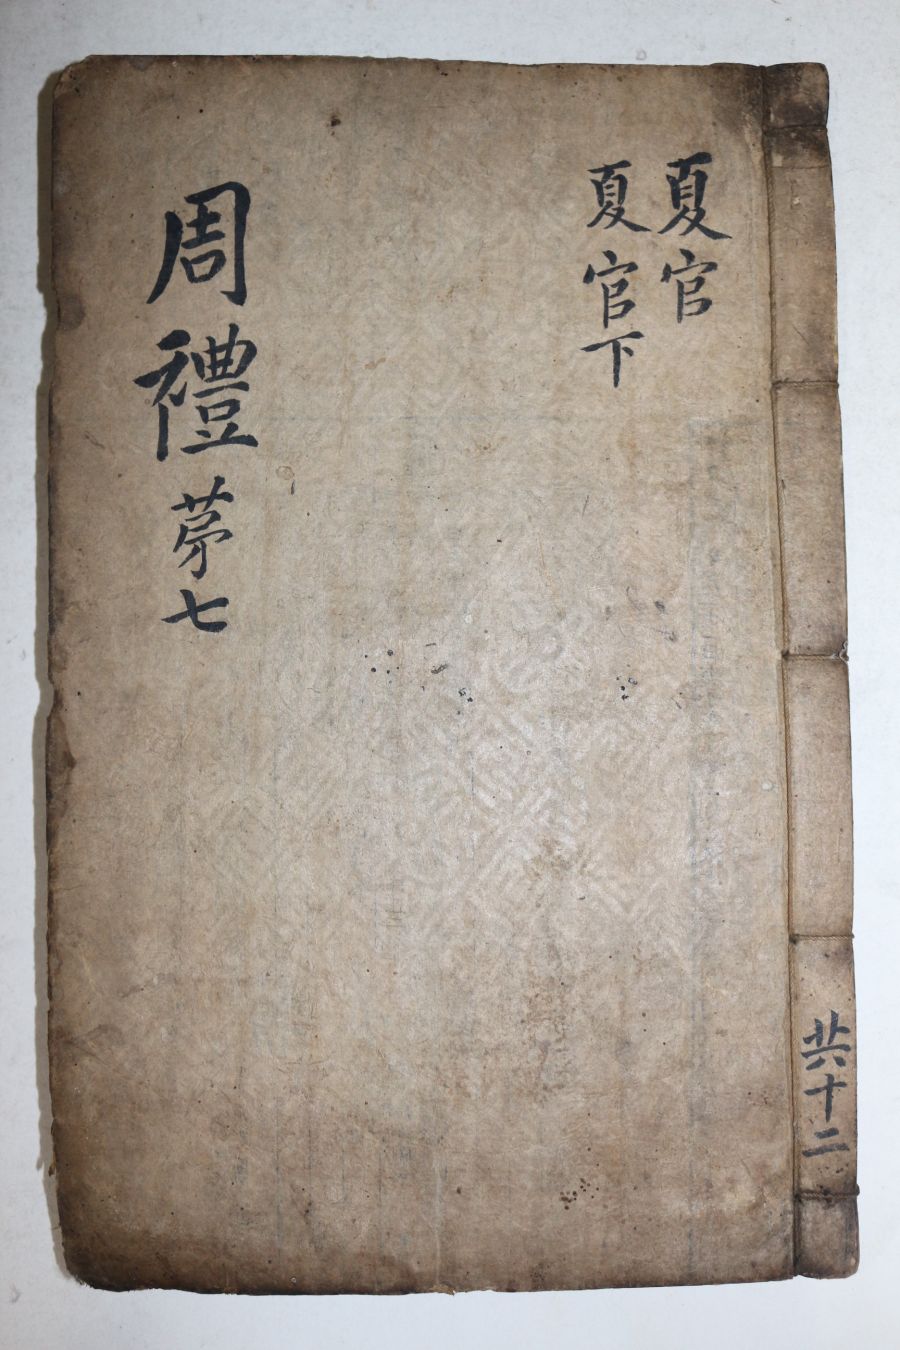 夏官
夏官下
周禮 苐七
共十二